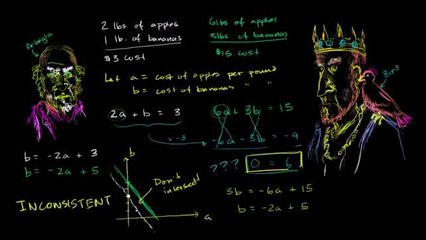 Arbegla
2 lbs of apples
1 lb. of bananas
$3 cost
6 lbs of apples
3lbs of bananas
$15 cost
Bird
Let a = cost of apples per pound
b = cost of bananas " "
2a + b = 3
6a + 3b = 15
x -3
-6a - 3b = -9
? ? ? 0 = 6
b = -2a + 3
b = -2a + 5
b
Don't
intersect!
a
INCONSISTENT
3b = -6a + 15
b = -2a + 5